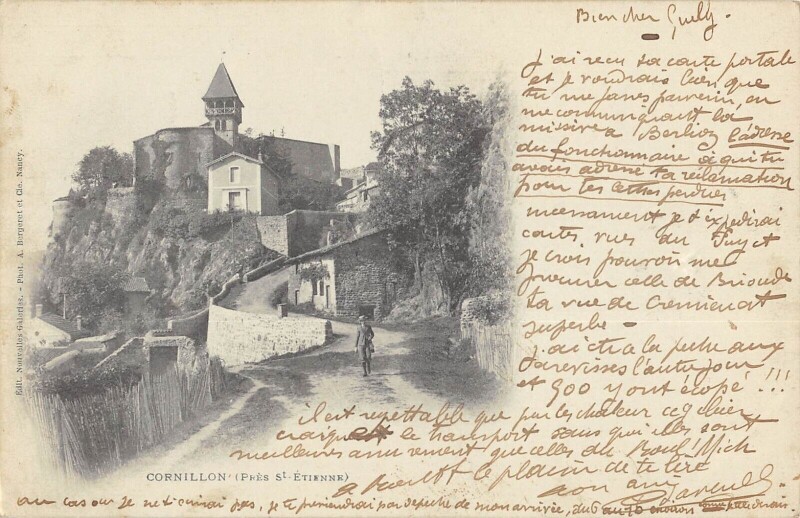 Bien cher Guely.
J'ai recu ta carte postale
et je voudrais bien que
tu me fasses parvenir, en
me communiquant la
missive a Berlioz l'adresse
du fonctionnaire à qui tu
avais adressé ta réclamation
pour tes cartes perdues
incessament je t'expédirai
cartes vues du Puy et
je crois pouvoir me
procurer celle de Brioude
ta vue de Cremieu est
superbe -
J'ai été a la peche aux
écrevisses l'autre jour
et 900 y ont écopé !!!
il est regrettable que par les chaleur ce gibier
craigne le transport sans quoi elles sont
meilleures assurement que celles du Boul' Mich
a bientôt le plaisir de te lire
ton ami
au cas ou je n'écrirai pas, je te previendrai par depeche de mon arrivée, du 6 au 10
CORNILLON (PRÈS ST-ÉTIENNE)
Edit. Nouvelles Galeries. - Phot. A. Bergeret et Cie. Nancy.